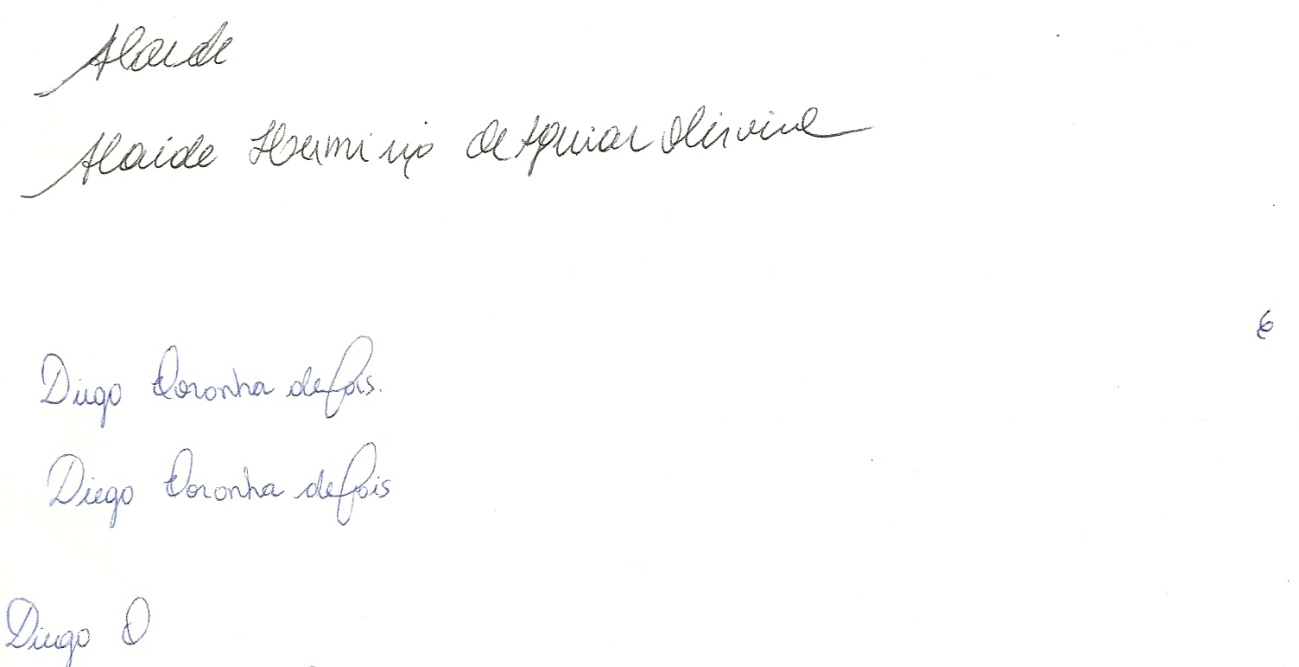 Alaide
Alaide Herminio de Aguiar Oliveira
Diego Noronha de
Diego Noronha de
Diego